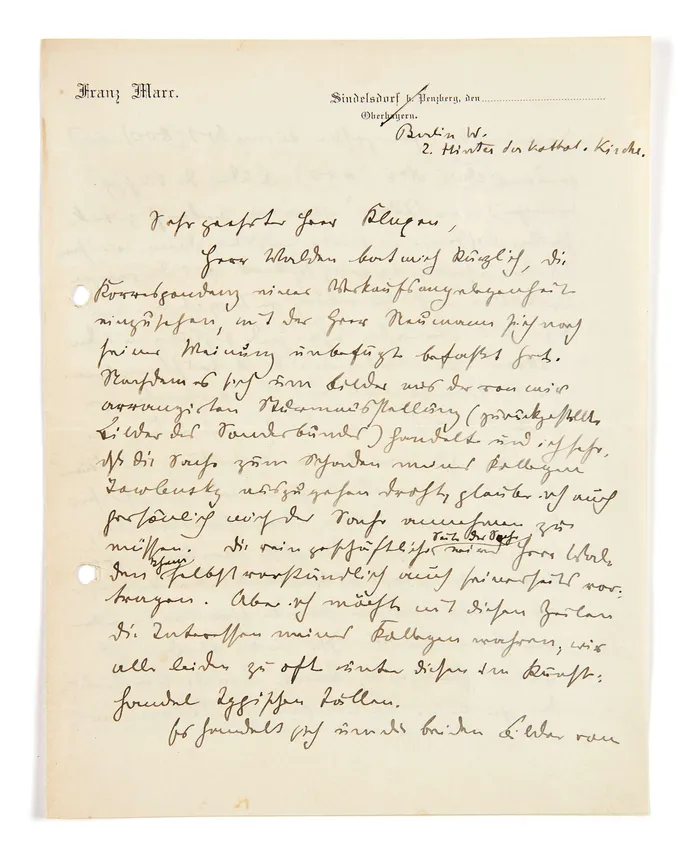 Franz Marc.
Sindelsdorf b. Penzberg, den
Oberbayern.
Berlin W.
2. Hinter der kathol. Kirche.
Sehr geehrter Herr Klupen,
Herr Walden bat mich kürzlich, die
Korrespondenz einer Verkaufsangelegenheit
einzusehen, mit der Herr Neumann sich nach
seiner Meinung unbefugte befasst hat.
Nachdem es sich um Bilder aus der von mir
arrangirten Sturmausstellung (zurückgestellte
Bilder des Sonderbundes) handelt und ich sehe,
dass die Sache zum Schaden meines Kollegen
Jawlensky auszugehen droht, glaube ich auch
persönlich mich der Sache annehmen zu
müssen. Die rein geschäftliche Seite der Sache wird Herr Wal-
den Ihnen selbstverständlich auch seinerseits vor-
tragen. Aber ich möchte mit diesen Zeilen
die Interessen meines Kollegen wahren, wir
alle leiden zu oft unter diesen im Kunst-
handel typischen Fällen.
Es handelt sich um die beiden Bilder von